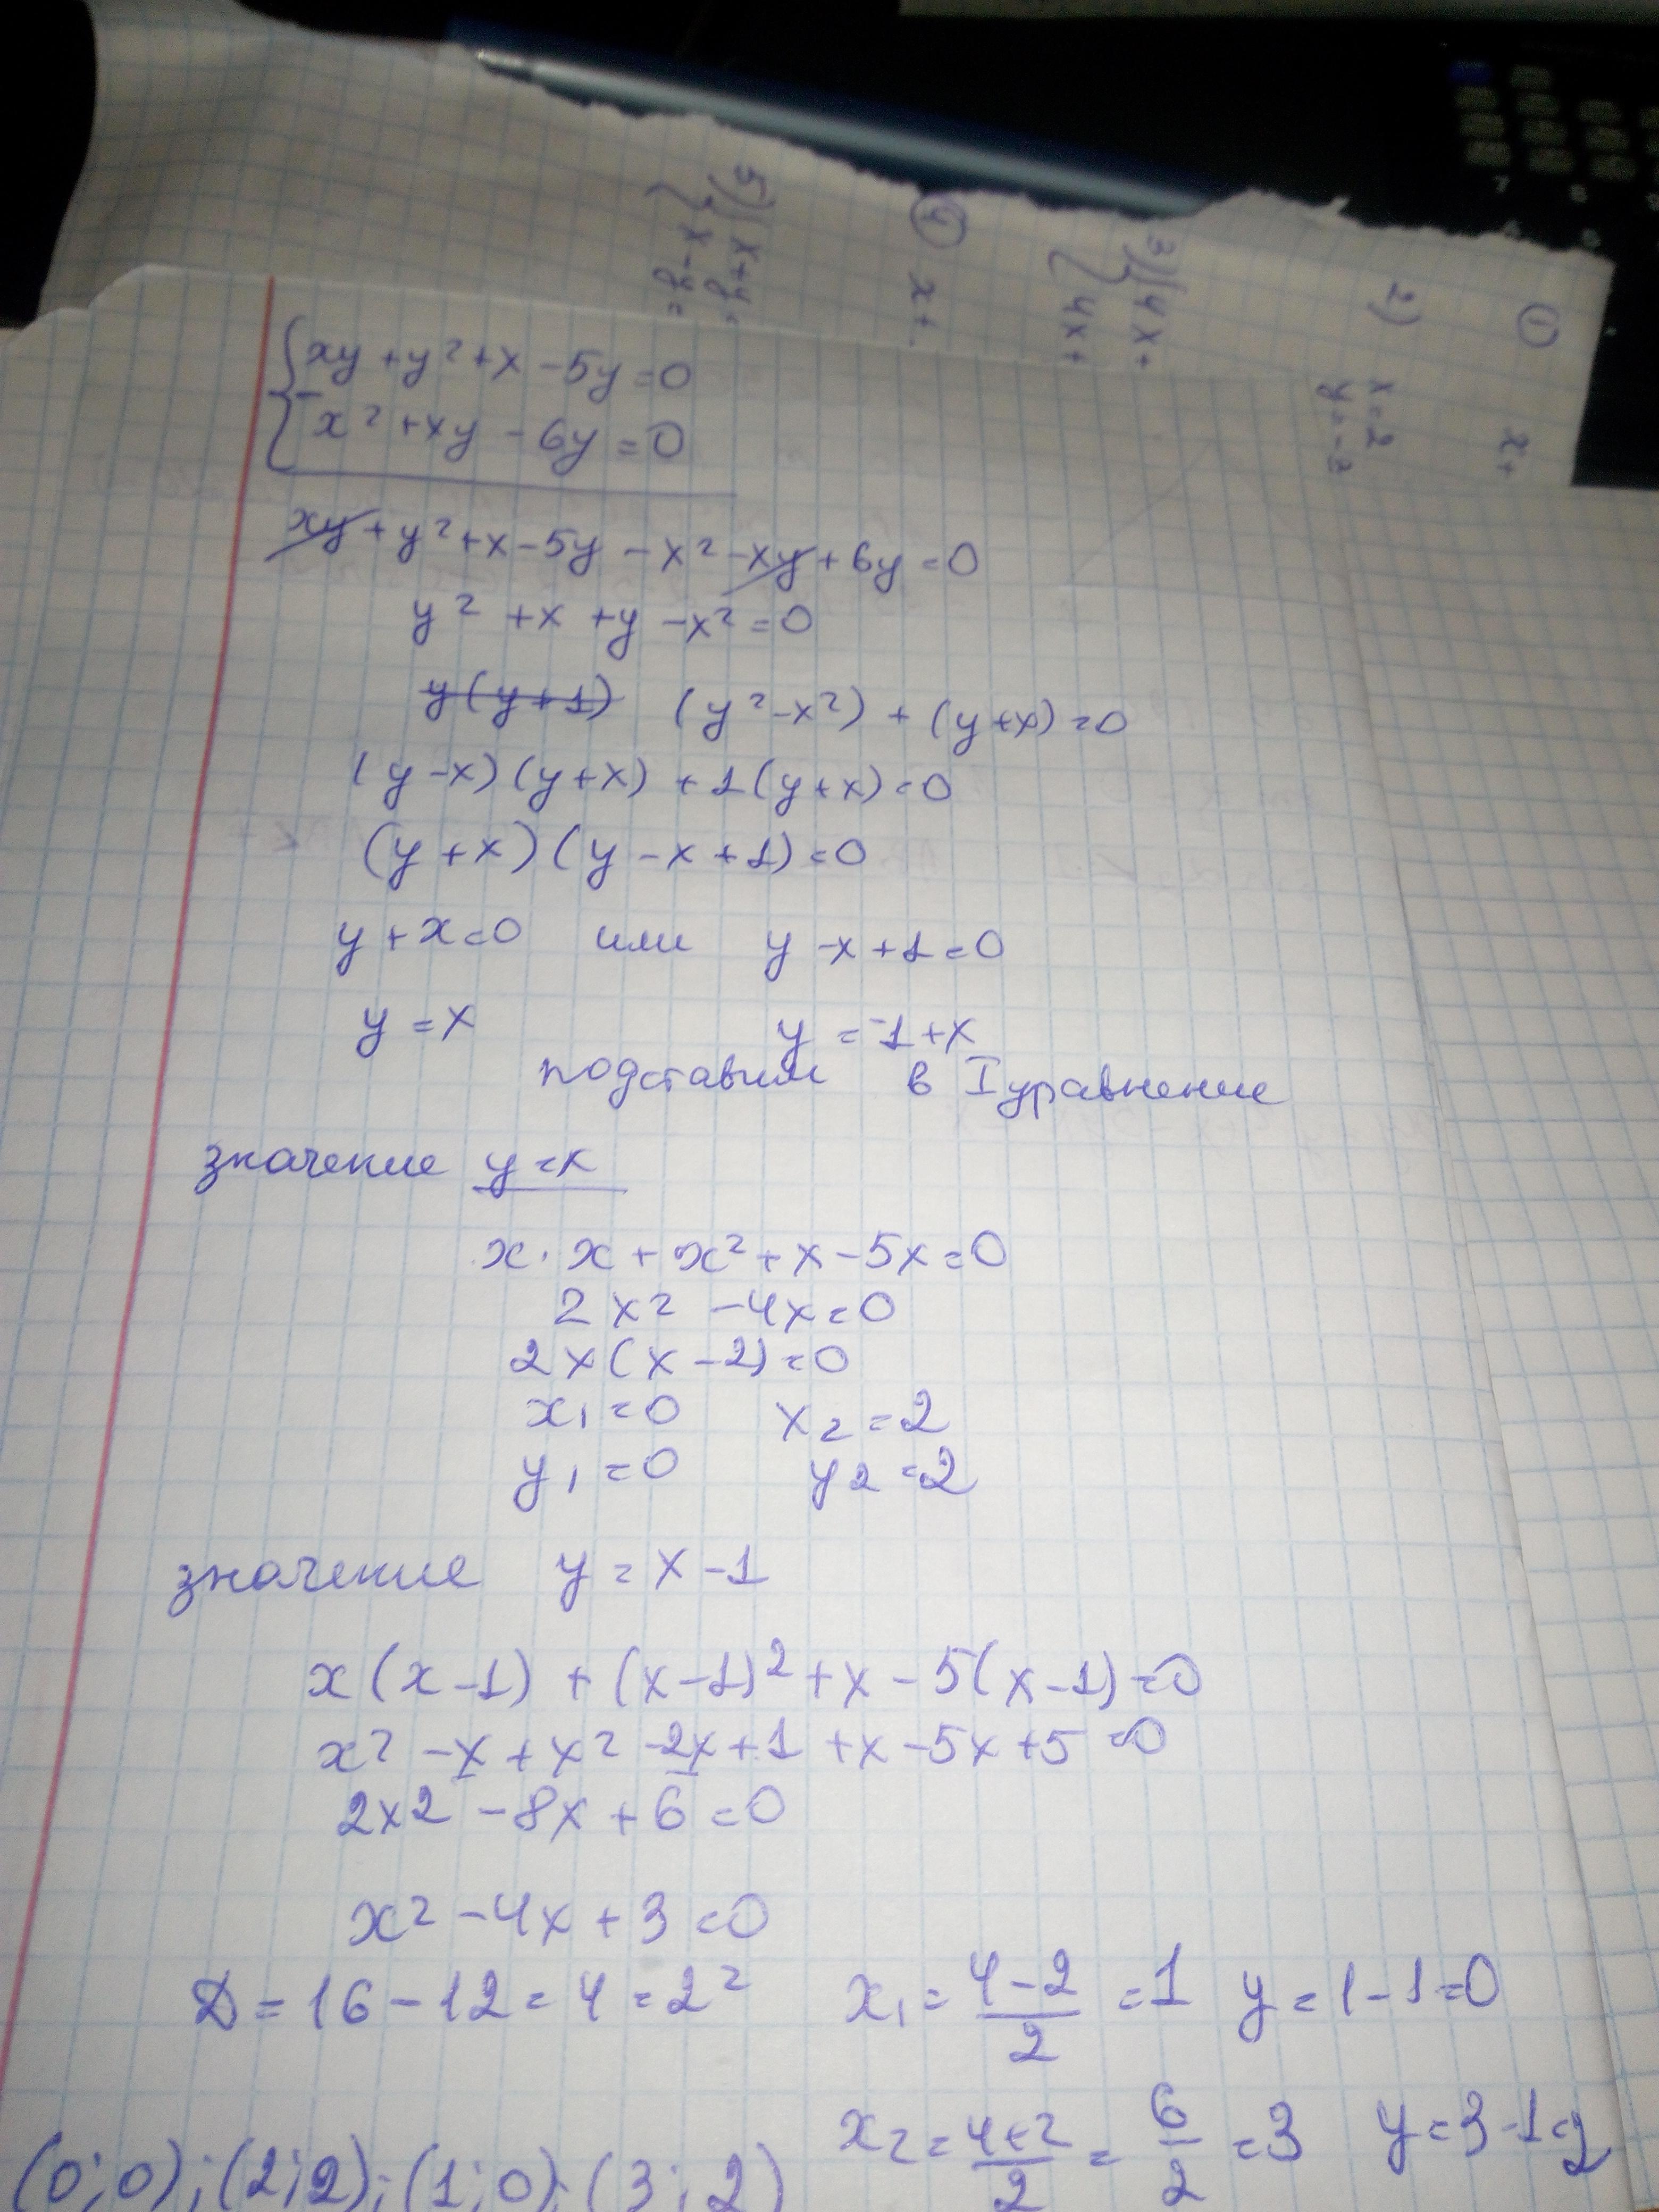 5) { x+y=
x-y=
④ x+
3) { 4x+
4x+
2) x=2
y=-2
① x+
{ xy+y²+x-5y=0
- x²+xy-6y=0
xy+y²+x-5y-x²-xy+6y=0
y²+x+y-x²=0
y(y+1) (y²-x²)+(y+x)=0
(y-x)(y+x)+1(y+x)=0
(y+x)(y-x+1)=0
y+x=0 или y-x+1=0
y=x y=-1+x
подставим в I уравнение
значение y=x
x·x+x²+x-5x=0
2x²-4x=0
2x(x-2)=0
x₁=0 x₂=2
y₁=0 y₂=2
значение y=x-1
x(x-1)+(x-1)²+x-5(x-1)=0
x²-x+x²-2x+1+x-5x+5=0
2x2-8x+6=0
x²-4x+3=0
D=16-12=4=2² x₁=4-2/2=1 y=1-1=0
x₂=4+2/2=6/2=3 y=3-1=2
(0;0);(2;2);(1;0);(3;2)